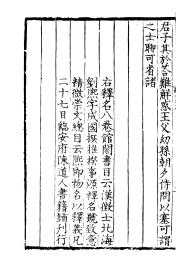 君子其於荅難解惑王父幼孫朝夕侍問以塞可謂
之士聊可省諸
右釋名八卷館閣書目云漢徵士北海
劉熙字成國撰推揆事源釋名號致意
精微崇文總目云熙即物名以釋義凡
二十七目臨安府陳道人書籍鋪刊行